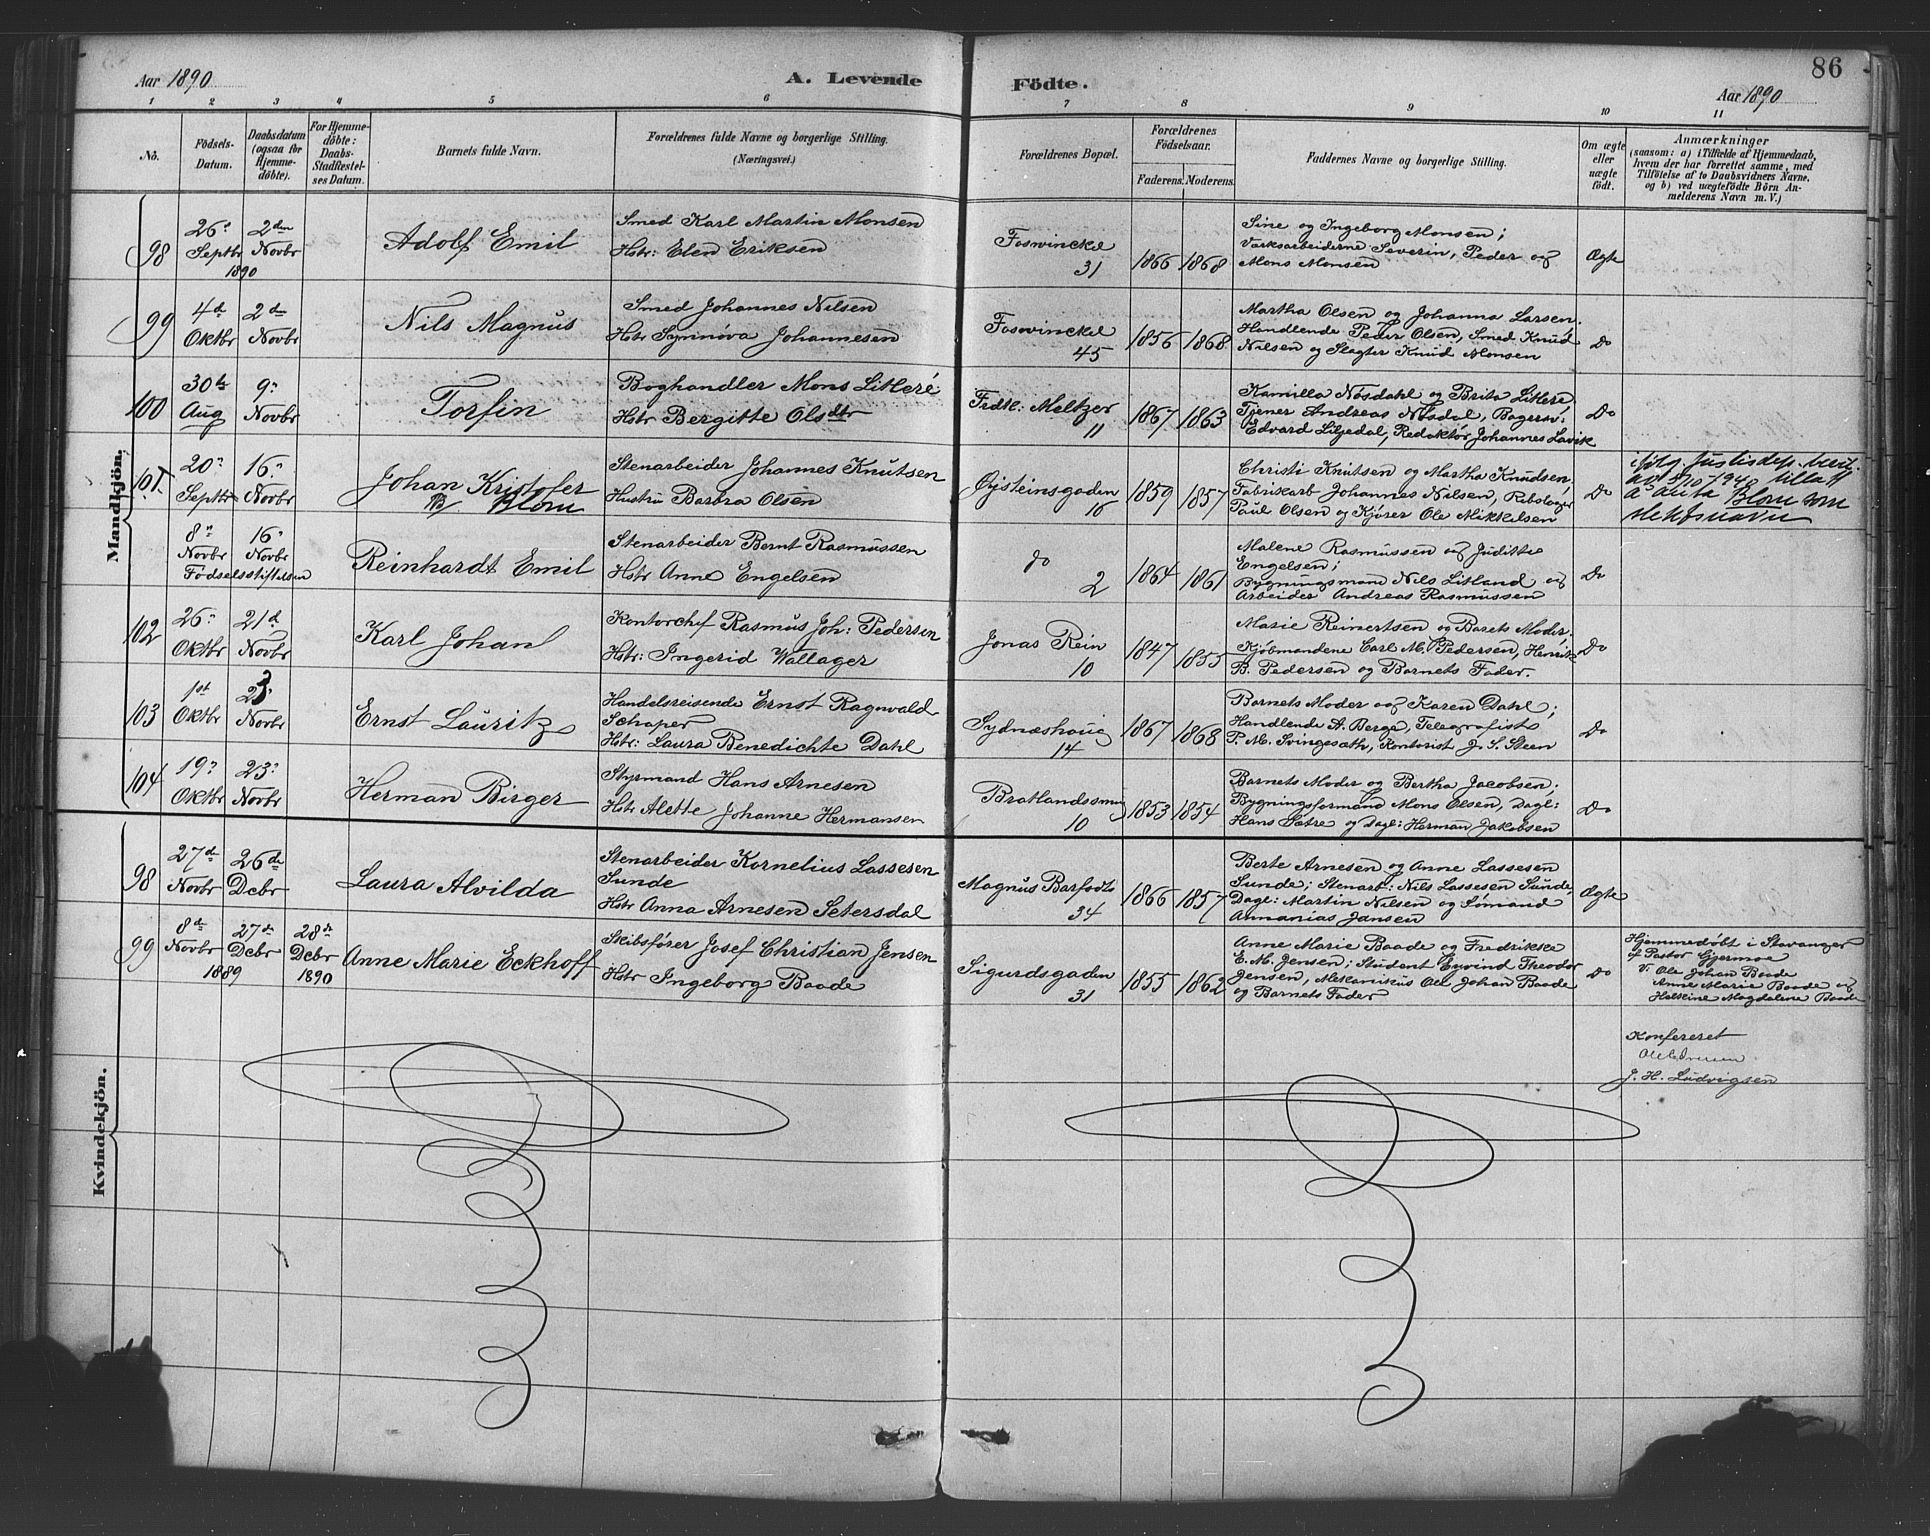 Aar 1890
A. Levende
Födte.
86
Aar 1890
1 2 3 4 5 6 7 8 9 10 11
No.
Födsels-Datum.
Daabsdatum (ogsaa for Hjemme-döbte).
For Hjemme-döbte: Daabs-Stadfæstel-ses Datum.
Barnets fulde Navn.
Forældrenes fulde Navne og borgerlige Stilling.
(Næringsvei.)
Forældrenes Bopæl.
Forældrenes Födselsaar.
Faderens. Moderens.
Faddernes Navne og borgerlige Stilling.
Om ægte eller uægte födt.
Anmærkninger
(saasom: a) i Tilfælde af Hjemmedaab,
hvem der har forrettet samme, med
Tilföielse af to Daabsvidners Navne,
og b) ved uægtefödte Börn An-
melderens Navn m. V.)
Mandkjön.
98
26 Septbr 1890
2den Novbr
Adolf Emil
Smed Karl Martin Monsen
Hstr: Elen Eriksen
Fosvinckel 31
1866 1868
Sine og Ingeborg Monsen;
Værksarbeiderne Severin, Peder og
Mons Monsen
Ægte
99
4d Oktbr
2d Novbr
Nils Magnus
Smed Johannes Nilsen
Hstr Synnøva Johannesen
Fosvinckel 45
1856 1868
Martha Olsen og Johanna Larsen.
Handlende Peder Olsen, Smed Knud
Nilsen og Slagter Knud Monsen
Do
100
30te Aug
9 Novbr
Torfin
Boghandler Mons Litleré
Hstr Bergitte Olsdtr
Fredr. Meltzer 11
1867 1863
Kamilla Nøsdahl og Brita Litleré
Tjener Andreas Nøsdal, Bagersv:
Edvard Liljedal, Redaktør Johannes Lavik
Do
101
20 Septbr
16 Novbr
Johan Kristofer
Blom
Stenarbeider Johannes Knutsen
Hustru Barbra Olsen
Øisteinsgaden 16
1859 1857
Christi Knutsen og Martha Knudsen,
Fabrikarb Johannes Nilsen, Rebslager
Paul Olsen og Kjører Ole Mikkelsen
Do
ifølg Justisdep. bevil.
av 5/10 1940 tillatt
å anta Blom som
slektsnavn
8 Novbr
16 Novbr
Fødselsstiftelsen
Reinhardt Emil
Stenarbeider Bernt Rasmussen
Hstr Anne Engelsen
do 2
1864 1861
Malene Rasmussen og Juditte
Engelsen;
Bygningsmand Nils Litland og
Arbeider Andreas Rasmussen
Do
102
26 Oktbr
21d Novbr
Karl Johan
Kontorchef Rasmus Joh: Pedersen
Hstr: Ingerid Wallager
Jonas Rein 10
1847 1855
Marie Reinertsen og Barets Moder,
Kjøbmandene Carl M. Pedersen, Henrik
B. Pedersen og Barnets Fader.
Do
103
1st Oktbr
23 Novbr
Ernst Lauritz
Handelsreisende Ernst Ragnvald
Schaper
Hstr: Laura Benedichte Dahl
Sydnæshoug 14
1867 1868
Barnets Moder og Karen Dahl;
Handlende A. Berge, Telegrafist
P. M. Svingesæth, Kontorist J. S. Steen
Do
104
19 Oktbr
23 Novbr
Herman Birger
Styrmand Hans Arnesen
Hstr Alette Johanne Hermansen
Bratlandssmug 10
1853 1854
Barnets Moder og Bertha Jacobsen;
Bygningsformand Mons Olsen, Dagl:
Hans Sætre og Dagl: Herman Jakobsen
Do
Kvindekjön.
98
27d Novbr
26de Dcbr
Laura Alvilda
Stenarbeider Kornelius Lassesen
Sunde
Hstr Anna Arnesen Setersdal
Magnus Barfodts 34
1866 1857
Berte Arnesen og Anne Lassesen
Sunde; Stenarb: Nils Lassesen Sunde,
Dagl: Martin Nilsen og Sømand
Annanias Jansen
Ægte
99
8d Novbr
27de Dcbr
1889
28de Dcbr
1890
Anne Marie Eckhoff
Skibsfører Josef Christian Jensen
Hstr Ingeborg Baade
Sigurdsgaden 31
1855 1862
Anne Marie Baade og Fredrikke
E. M. Jensen; Student Eyvind Theodor
Jensen, Mekanikus Ole Johan Baade
og Barnets Fader
Do
Hjemmedøbt i Stavanger
af Pastor Gjermoe
V. Ole Johan Baade
Anne Marie Baade og
Halkine Magdalene Baade
Konfereret
J. H. Ludvigsen